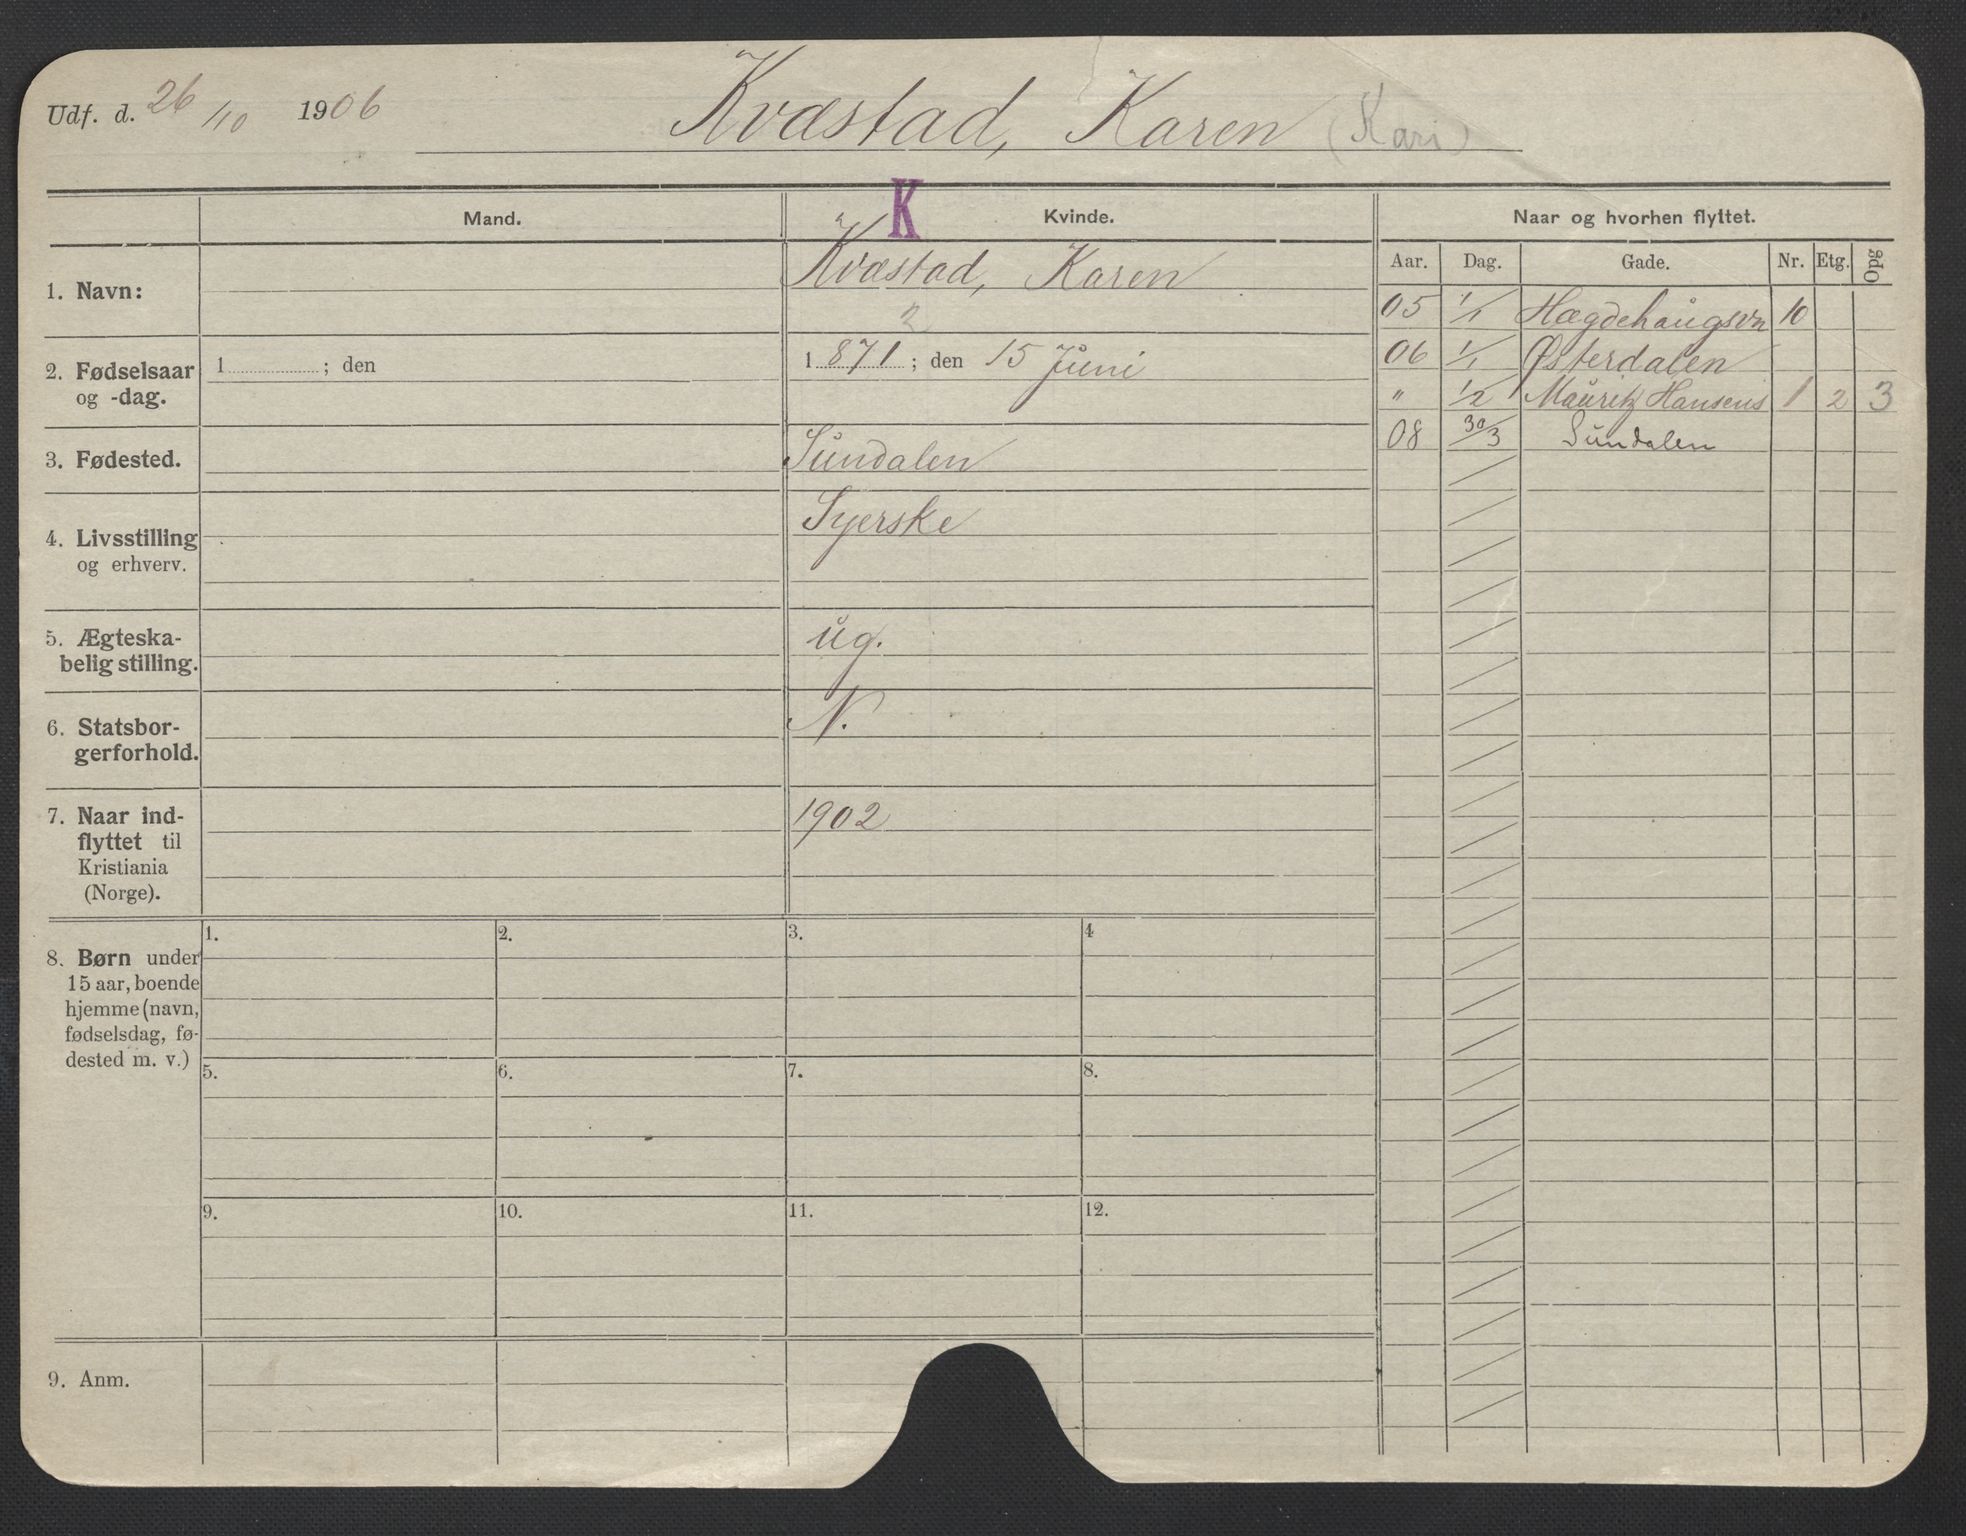 Udf. d. 26/10 1906 Kvæstad, Karen (Kari)
K
Mand. Kvinde. Naar og hvorhen flyttet.
Aar. Dag. Gade. Nr. Etg. Opg
1. Navn: Kvæstad, Karen
2
2. Fødselsaar og -dag. 1 ; den 1871 ; den 15 Juni
3. Fødested. Sundalen
4. Livsstilling og erhverv. Syerske
5. Ægteska-
belig stilling. ug.
6. Statsbor-
gerforhold. N.
7. Naar ind-
flyttet til
Kristiania
(Norge). 1902
05 1/1 Hægdehaugsvn 10
06 1/1 Østerdalen
" 1/2 Mauritz Hansens 1 2 3
08 30/3 Sundalen
8. Børn under
15 aar, boende
hjemme (navn,
fødselsdag, fø-
dested m. v.)
1. 2. 3. 4
5. 6. 7. 8.
9. 10. 11. 12.
9. Anm.